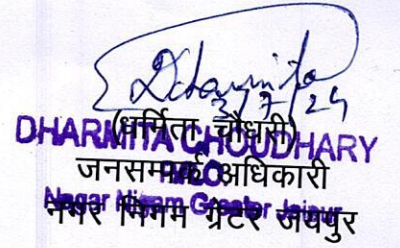 Dharmita
3/7/24
(धर्मिता चौधरी)
DHARMITA CHOUDHARY
जनसम्पर्क अधिकारी
Nagar Nigam Greater Jaipur
नगर निगम ग्रेटर जयपुर